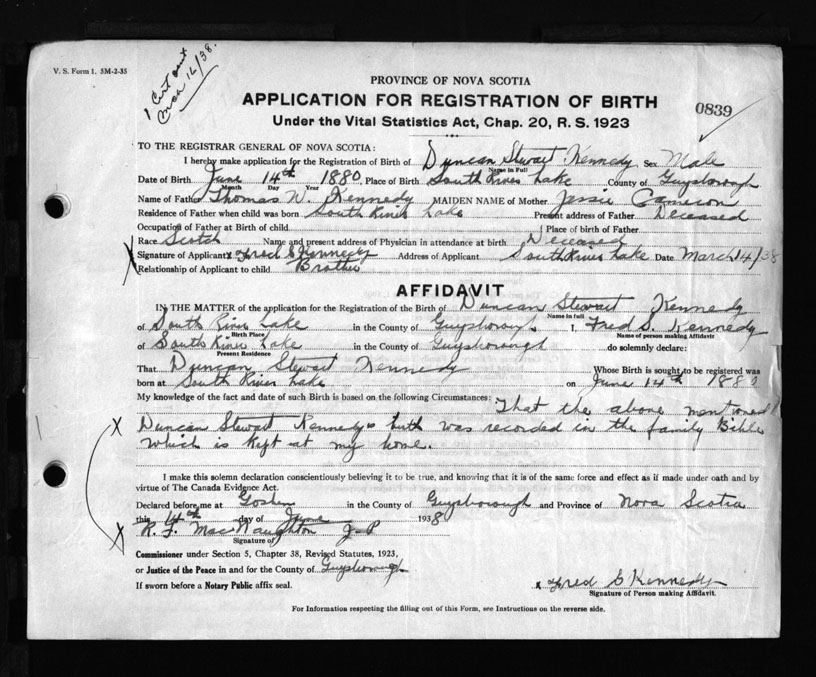 V. S. Form 1. 5M-2-35
1 Cert sent
Mar 16/38.
PROVINCE OF NOVA SCOTIA
APPLICATION FOR REGISTRATION OF BIRTH
0839
Under the Vital Statistics Act, Chap. 20, R. S. 1923
TO THE REGISTRAR GENERAL OF NOVA SCOTIA:
I hereby make application for the Registration of Birth of Duncan Stewart Kennedy Sex Male
Name in Full
Date of Birth June 14th 1880, Place of Birth South River Lake County of Guysborough
Month Day Year
Name of Father Thomas W. Kennedy MAIDEN NAME of Mother Jessie Cameron
Residence of Father when child was born South River Lake Present address of Father Deceased
Occupation of Father at Birth of child Place of birth of Father
Race Scotch Name and present address of Physician in attendance at birth Deceased
X Signature of Applicant x Fred S Kennedy Address of Applicant South River Lake Date March 14/38
Relationship of Applicant to child Brother
AFFIDAVIT
IN THE MATTER of the application for the Registration of the Birth of Duncan Stewart Kennedy
Name in full
of South River Lake in the County of Guysborough I, Fred S. Kennedy
Birth Place Name of person making Affidavit
of South River Lake in the County of Guysborough do solemnly declare:
Present Residence
That Duncan Stewart Kennedy Whose Birth is sought to be registered was
born at South River Lake on June 14th 1880
My knowledge of the fact and date of such Birth is based on the following Circumstances: That the above mentioned
X Duncan Stewart Kennedys birth was recorded in the family Bible
which is kept at my home.
I make this solemn declaration conscientiously believing it to be true, and knowing that it is of the same force and effect as if made under oath and by
virtue of The Canada Evidence Act.
Declared before me at Goshen in the County of Guysborough and Province of Nova Scotia
this 14th day of 1938
X R. F. MacNaughton J-P
Signature of
Commissioner under Section 5, Chapter 38, Revised Statutes, 1923,
or Justice of the Peace in and for the County of Guysborough
If sworn before a Notary Public affix seal.
x Fred S Kennedy
Signature of Person making Affidavit.
For Information respecting the filling out of this Form, see Instructions on the reverse side.